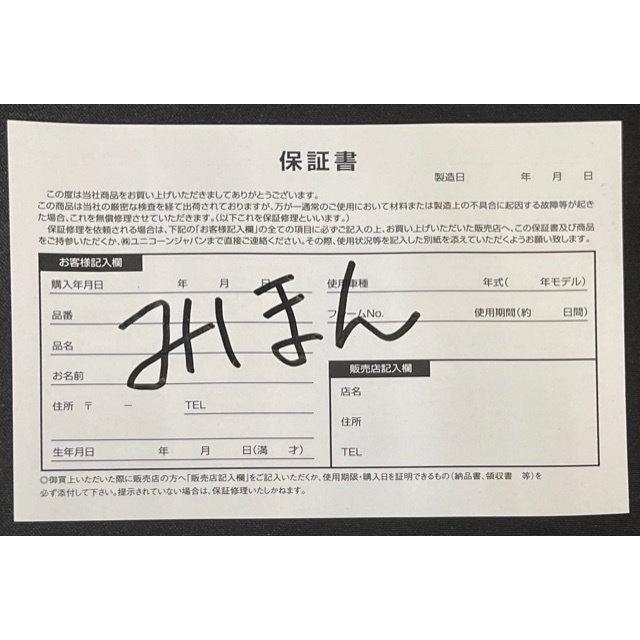 保証書
製造日 年 月 日
この度は当社商品をお買い上げいただきましてありがとうございます。
この商品は当社の厳密な検査を経て出荷されておりますが、万が一通常のご使用において材料または製造上の不具合に起因する故障等が起き
た場合、これを無償修理させていただきます。(以下これを保証修理といいます。)
保証修理を依頼される場合は、下記の「お客様記入欄」の全ての項目に必ずご記入の上、お買い上げいただいた販売店へ、この保証書及び商品
をご持参いただくか、㈱ユニコーンジャパンまで直接ご連絡ください。その際、使用状況等を記入した別紙を添えていただくようお願い致します。
お客様記入欄
購入年月日 年 月 日
品番
品名
お名前
住所 〒 − TEL
生年月日 年 月 日(満 才)
みほん
使用車種 年式( 年モデル)
フレームNo. 使用期間(約 日間)
販売店記入欄
店名
住所
TEL
◎御買上いただいた際に販売店の方へ「販売店記入欄」をご記入いただくか、使用期限・購入日を証明できるもの(納品書、領収書 等)を
必ず添付して下さい。提示されていない場合は、保証修理いたしかねます。